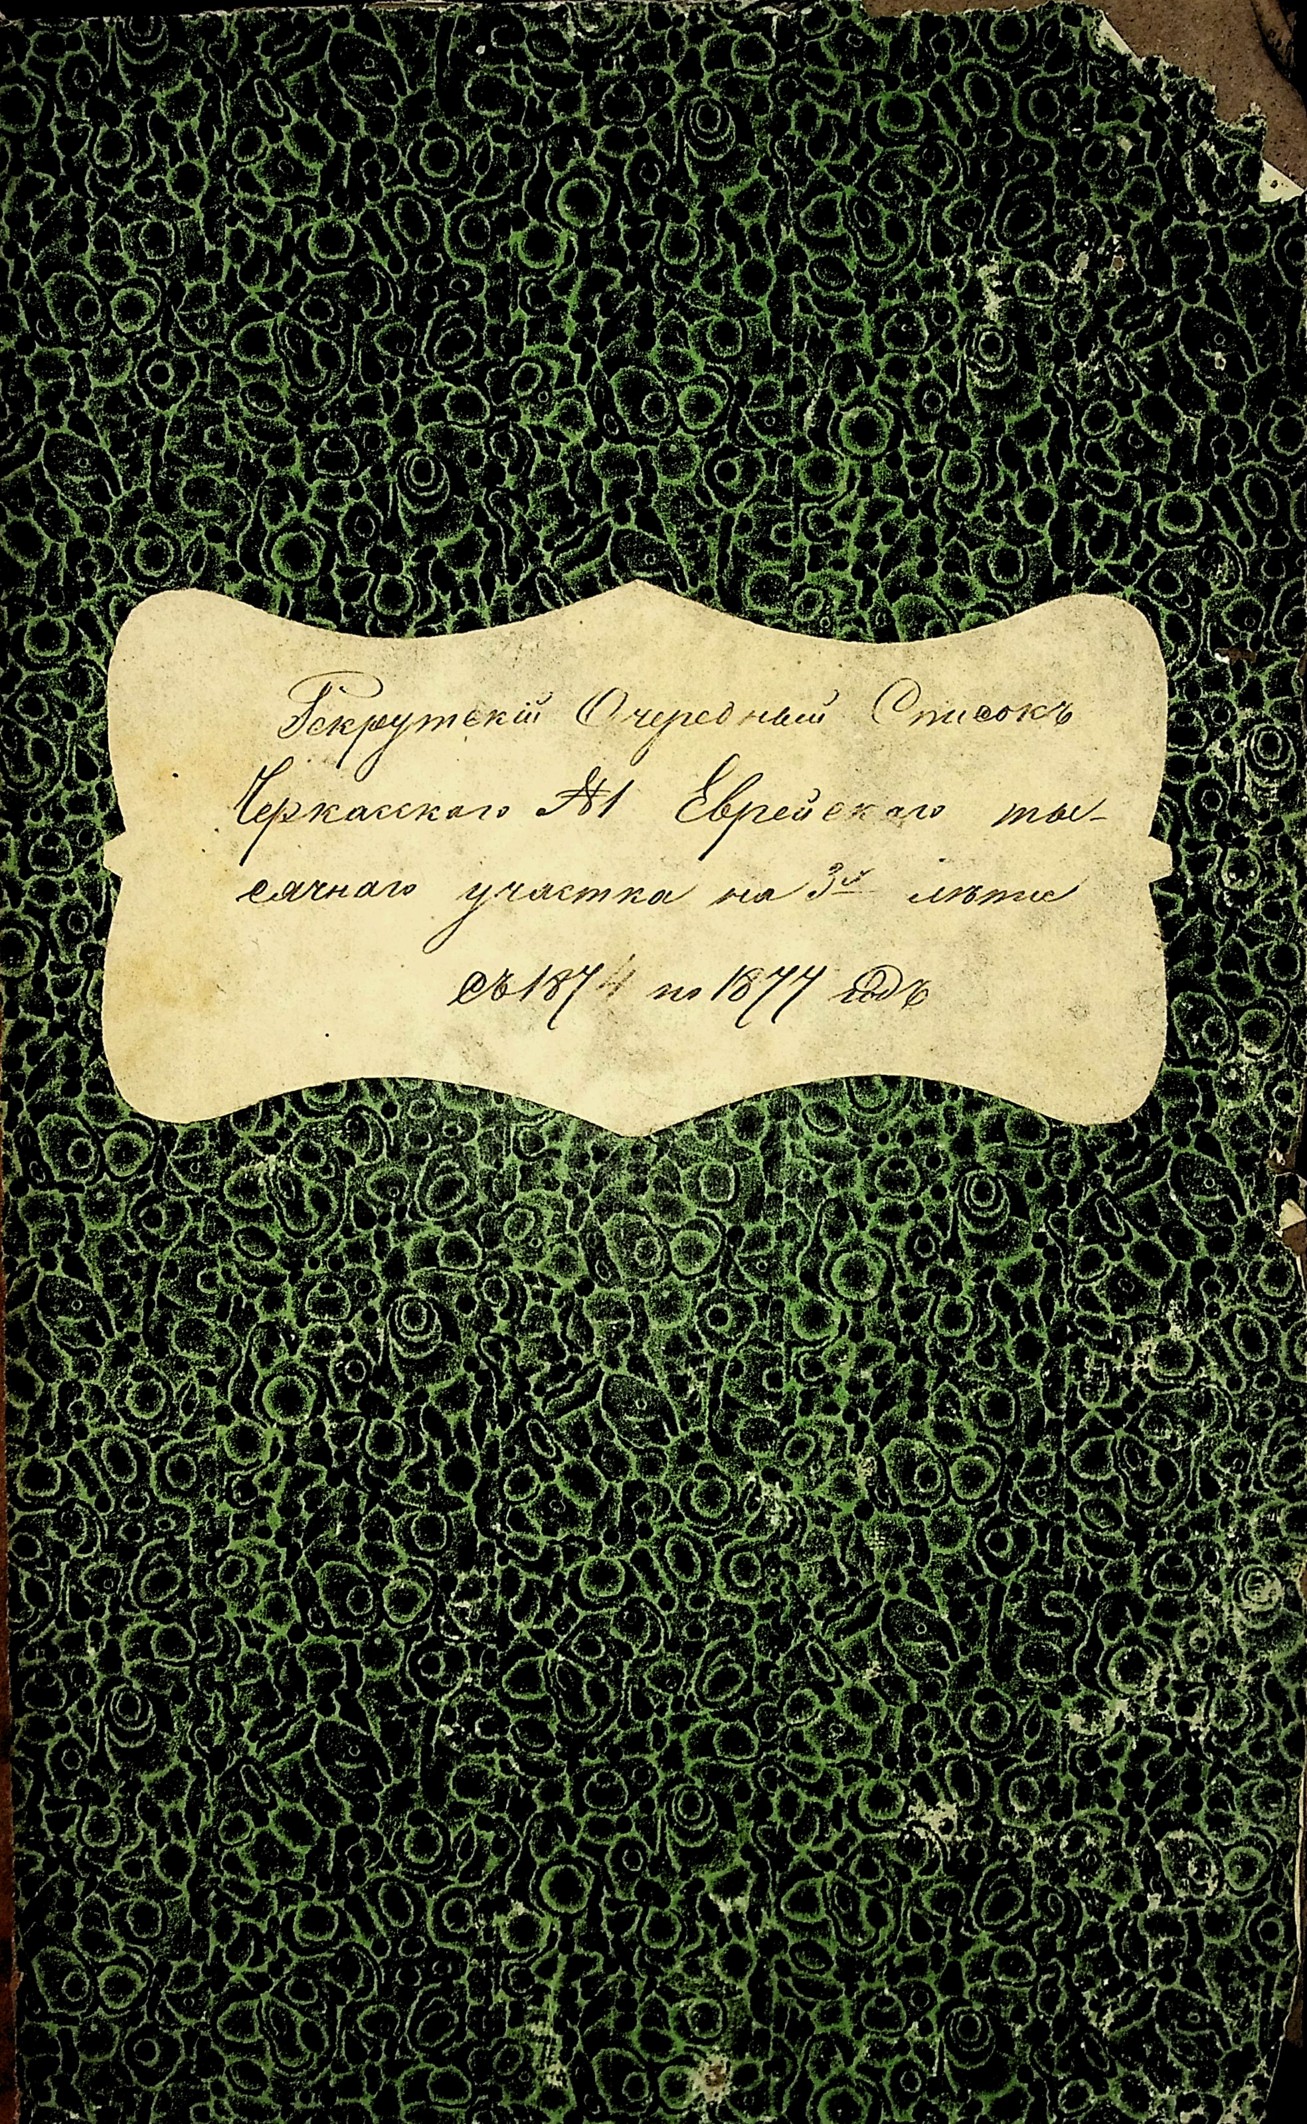 Рекрутскій Очередный Списокъ
Черкасскаго №1 Еврейскаго ты-
сячнаго участка на 3х лѣтіе
съ 1874 по 1877 годъ